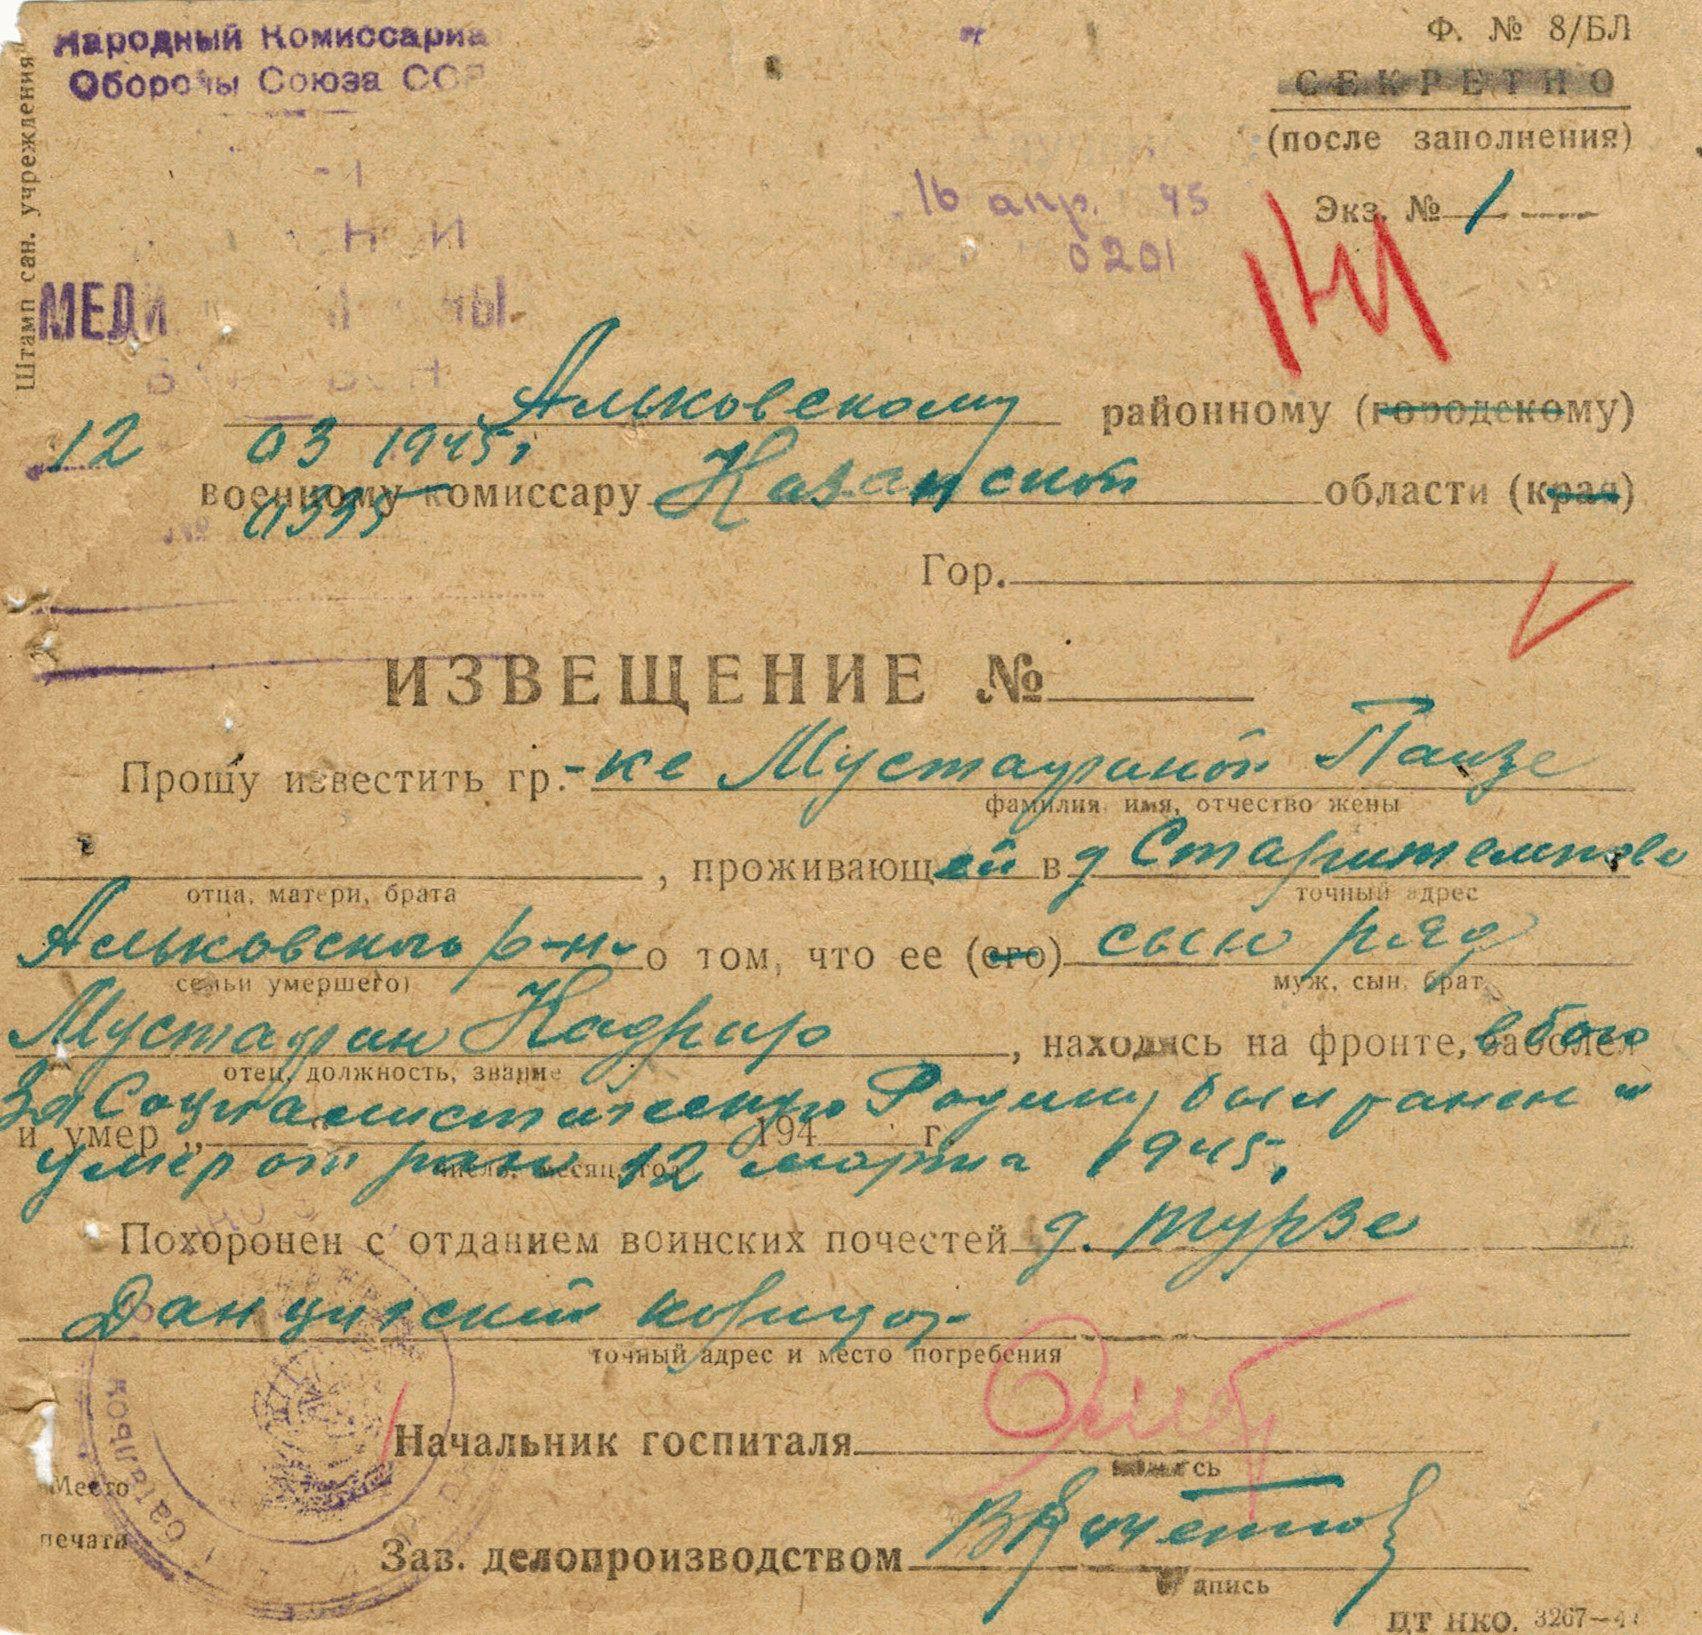 Народный Комиссариа
Обороны Союза ССР
Штамп сан. учреждения
Ф. № 8/БЛ
СЕКРЕТНО
(после заполнения)
Экз. № 1
16 апр. 45
0201
МЕДИ
Альковскому районному (городскому)
12 03 1945г
военному комиссару Казанской области (края)
№ 0335
Гор.
ИЗВЕЩЕНИЕ №
Прошу известить гр.-ке Мустафиной Паизе
фамилия, имя, отчество жены
, проживающей в д
отца, матери, брата
точный адрес
Альковского р-н о том, что ее (его) сын ряд
семьи умершего)
муж, сын, брат
Мустафин Кадыр, находясь на фронте, заболел в бою
отец, должность, звание
за Социалистическую Родину был ранен и
и умер „ 194 г.
умер от ран 12 марта 1945г
число, месяц, год
Похоронен с отданием воинских почестей д. Турзе
Данцигский коридор
точный адрес и место погребения
Начальник госпиталя
подпись
Место
печати
Зав. делопроизводством
подпись
ЦТ НКО. 3267—4